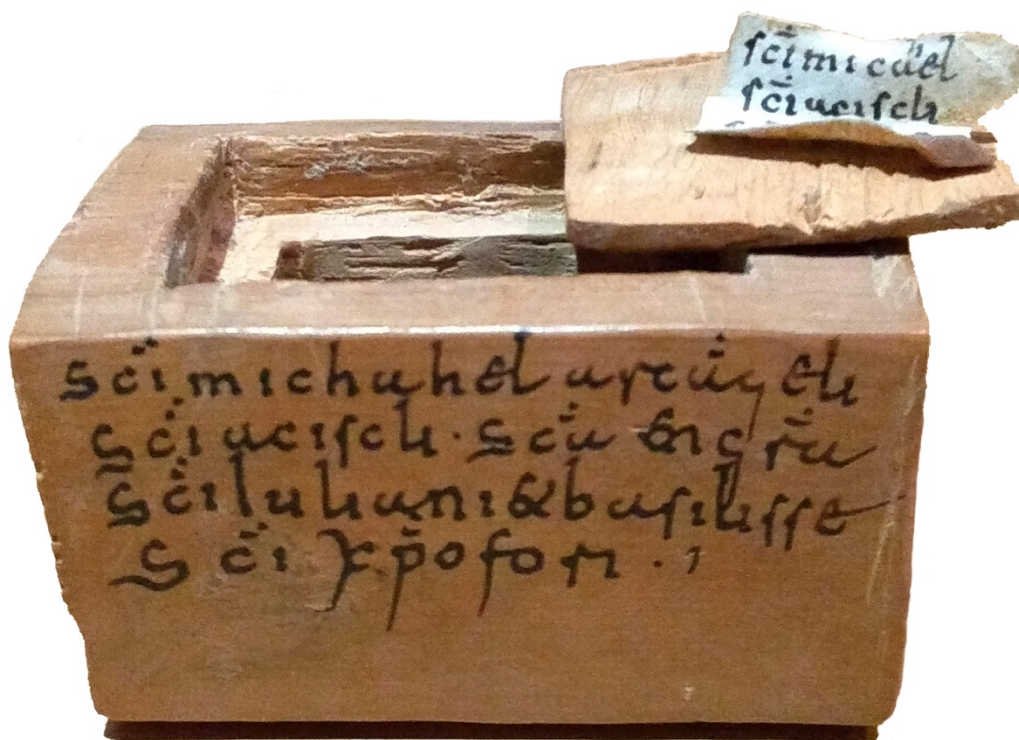 sc̄i micael
sc̄i aciscli
Sc̄i michahel arcāgeli
Sc̄i aciscli · Sc̄a engrā
Sc̄i Iuliani & basilisse
Sc̄i Xp̄ofori